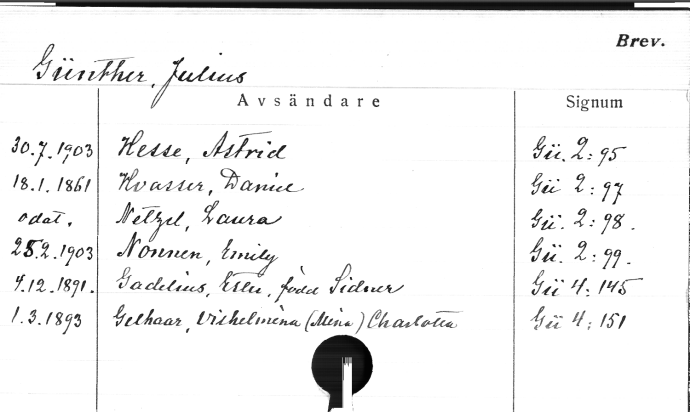 Brev.
Günther, Julius
Avsändare Signum
30.7.1903 Hesse, Astrid Gü. 2:95
18.1.1861 Kvasser, Daniel Gü 2:97
odat. Netzel, Laura Gü. 2:98.
25.2.1903 Nonnen, Emily Gü. 2:99.
4.12.1891. Gadelius, Ellen, född Sidner Gü 4:145
1.3.1893 Gelhaar, Vilhelmina (Mina) Charlotta Gü 4:151